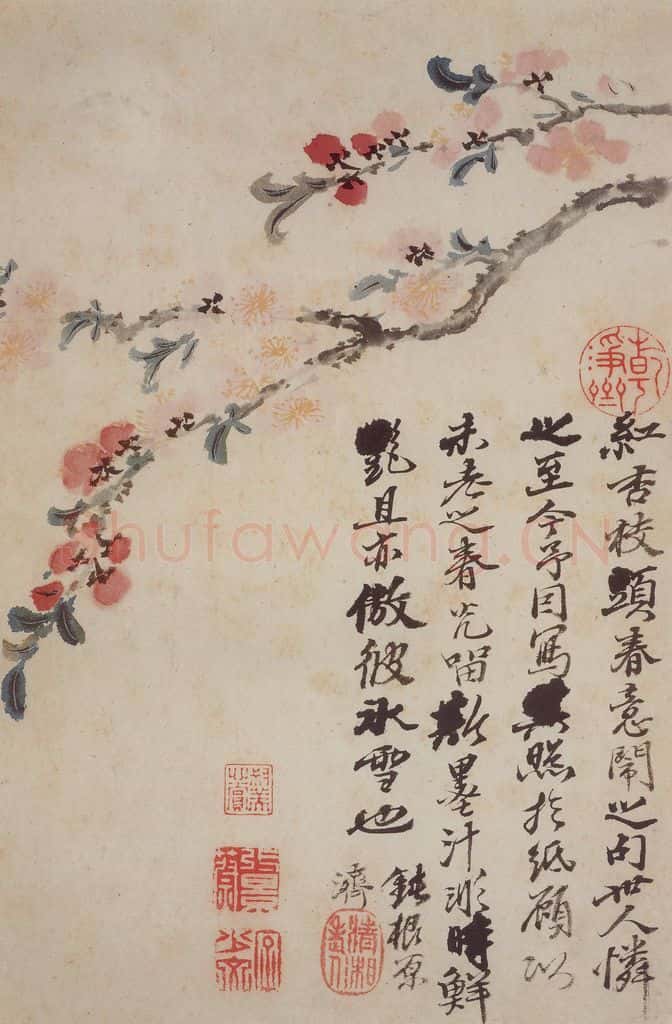 紅杏枝頭春意鬧之句世人憐
之至今予因寫其照於紙願以
未老之春光留斯墨汁時鮮
艷且亦傲彼冰雪也
鈍根原
濟
清湘老人
shufawang.CN